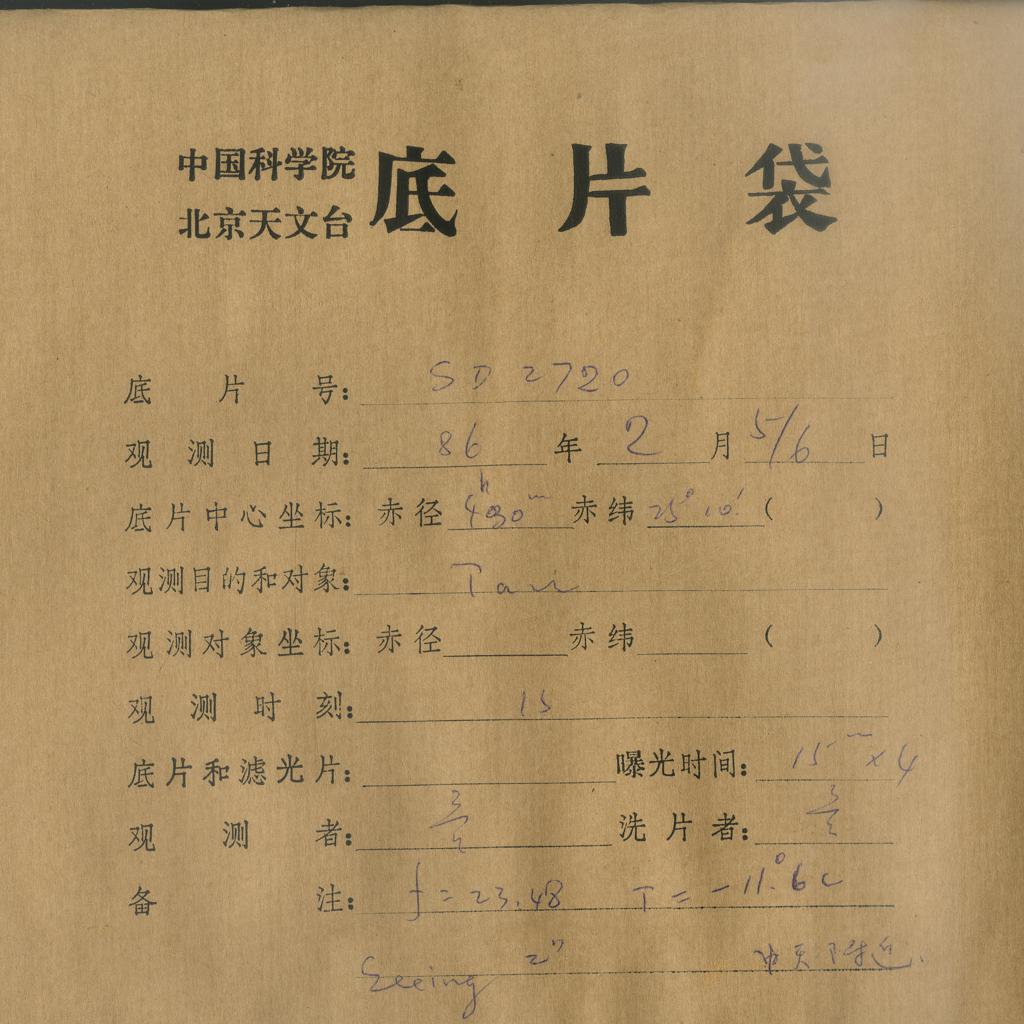 中国科学院
北京天文台
底片袋
底片号: SD 2720
观测日期: 86 年 2 月 5/6 日
底片中心坐标: 赤径 4h30m 赤纬 25°10′ ( )
观测目的和对象: Tau
观测对象坐标: 赤径 赤纬 ( )
观测时刻: 15
底片和滤光片: 曝光时间: 15m×4
观测者: 洗片者:
备注: f=23.48 T=-11.°6c
Seeing 2" 附近.